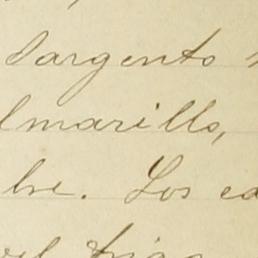 Sargento
lmarillo,
bre. Los ca